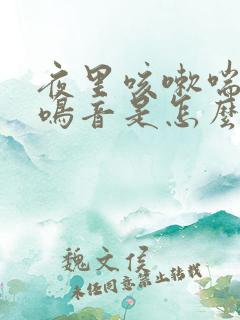 夜里咳嗽喘
鸣音是怎麼
魏文侯
未经同意禁止转载